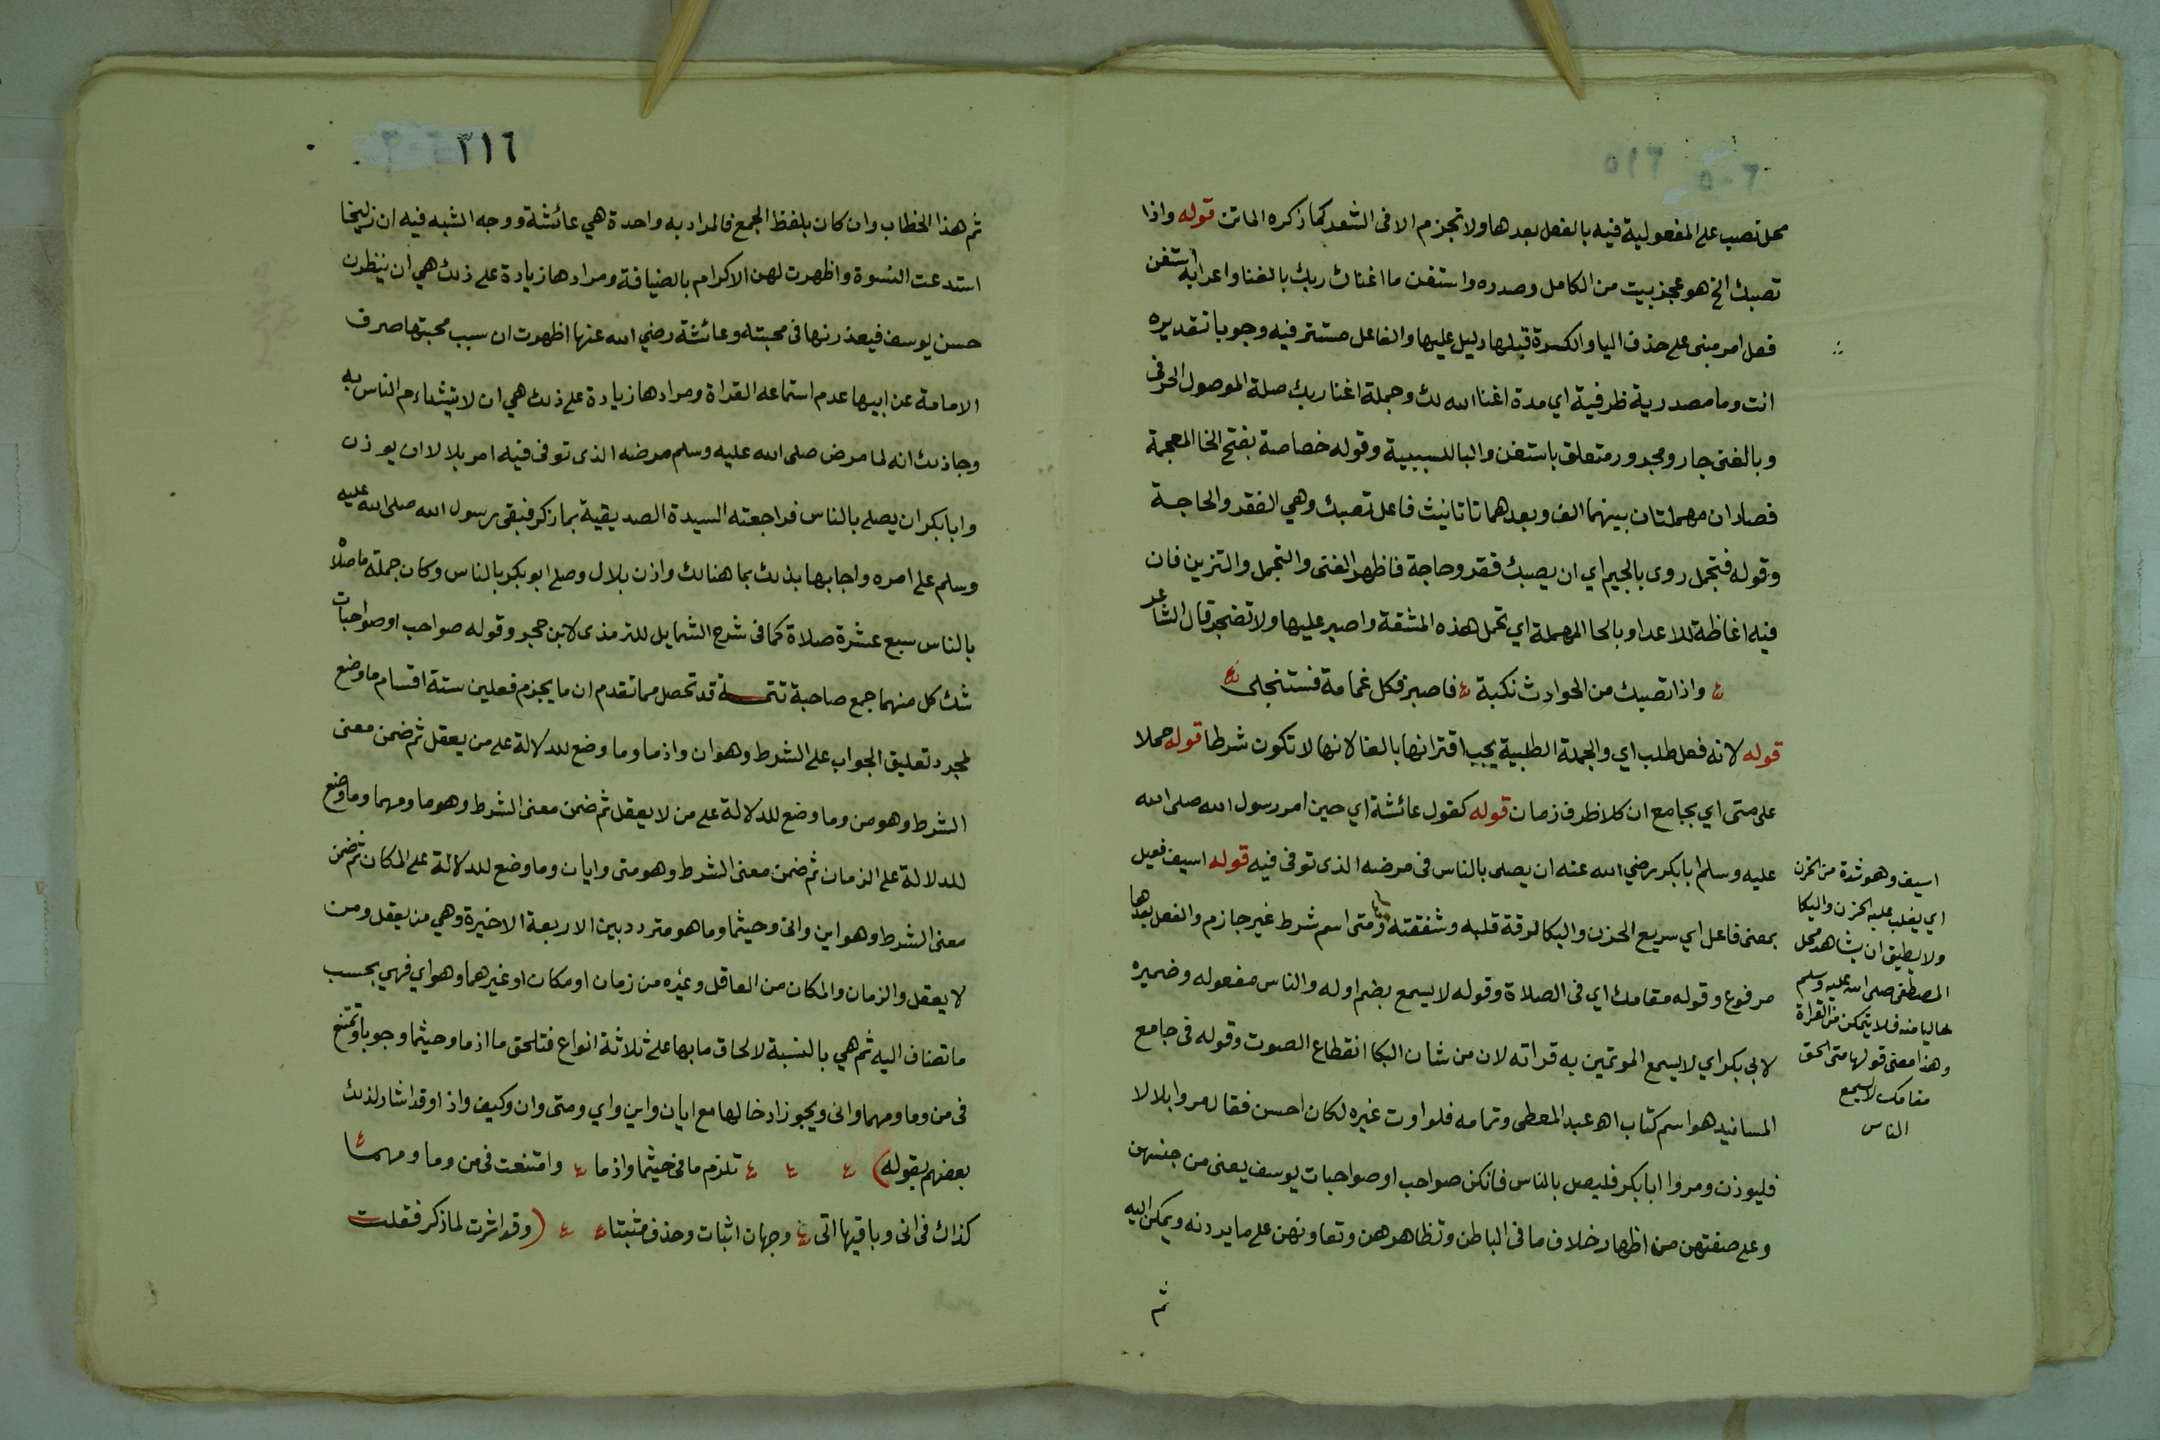 محل نصب على المفعولية فيه بالفعل بعدها ولا تجزم الا في الشعر كما ذكره الماتن قوله واذا
تصبك الخ هو عجز بيت من الكامل وصدره واستغن ما اغناك ربك بالغنا واعرابه استغن
فعل امر مبنى على حذف اليا والكسرة قبلها دليل عليها والفاعل مستتر فيه وجوبا تقديره
انت وما مصدرية ظرفية اي مدة اغنا الله لك وجملة اغنا ربك صلة الموصول الحرفى
وبالغنى جار ومجرور متعلق باستغن والبا للسببية وقوله خصاصة بفتح الخا المعجمة
فصادان مهملتان بينهما الف وبعدهما تا تانيث فاعل تصبك وهي الفقر والحاجة
وقوله فتجمل روى بالجيم اي ان يصبك فقر وحاجة فاظهر الغنى والتجمل والتزين فان
فيه اغاظة للاعدا وبالحا المهملة اي تحمل هذه المشقة واصبر عليها ولا تضجر قال الشاعر
واذا تصبك من الحوادث نكبة فاصبر فكل غمامة فستنجلى
قوله لانه فعل طلب اي والجملة الطبية يجب اقترانها بالفا لانها لا تكون شرطا قوله حملا
على متى اي بجامع ان كلا ظرف زمان قوله كقول عائشة اي حين امر رسول الله صلى الله
عليه وسلم ابا بكر رضي الله عنه ان يصلى بالناس فى مرضه الذى توفى فيه قوله اسيف فعيل
بمعنى فاعل اي سريع الحزن والبكا لرقة قلبه وشفقته ومتى اسم شرط غير جازم والفعل بعدها
مرفوع وقوله مقامك اي فى الصلاة وقوله لا يسمع بضم اوله والناس مفعوله وضميره
لابي بكر اي لا يسمع الموتمين به قراته لان من شان البكا انقطاع الصوت وقوله فى جامع
المسانيد هو اسم كتاب اه عبد المعطى وتمامه فلو اوت غيره لكان احسن فقال مروا بلالا
فليوذن ومروا ابا بكر فليصل بالناس فانكن صواحب او صواحبات يوسف يعنى من جنسهن
وعلى صفتهن من اظهار خلاف ما فى الباطن وتظاهرهن وتعاونهن على ما يردنه ويمكن اليه
ثم
اسيف وهو شدة من الحزن
اي يغلب عليه الحزن والبكا
ولا يطيق ان يشاهد محل
المصطفى صلى الله عليه وسلم
خاليا منه فلا يتمكن من القراة
وهذا معنى قولها متى الحق
مقامك لا يسمع
الناس
٣١٦
ثم هذا الخطاب وان كان بلفظ الجمع فالمراد به واحدة هي عائشة ووجه الشبه فيه ان زليخا
استدعت النسوة واظهرت لهن الاكرام بالضيافة ومرادها زيادة على ذلك هي ان ينظرن
حسن يوسف فيعذرنها فى محبته وعائشة رضي الله عنها اظهرت ان سبب محبتها صرف
الامامة عن ابيها عدم استماعه القراة ومرادها زيادة على ذلك هي ان لا يتشاءم الناس به
وجا ذلك انه لما مرض صلى الله عليه وسلم مرضه الذى توفى فيه امر بلالا ان يوذن
وابا بكر ان يصلى بالناس فراجعته السيدة الصديقية بما ذكر فبقى رسول الله صلى الله عليه
وسلم على امره واجابها بذلك بما هنالك واذن بلال وصلى ابو بكر بالناس وكان جملة ما صلا
بالناس سبع عشرة صلاة كما فى شرح الشمايل للترمذى لابن حجر وقوله صواحب او صواحبات
شك كل منهما جمع صاحبة تتمة قد تحصل مما تقدم ان ما يجزم فعلين ستة اقسام ما وضع
لمجرد تعليق الجواب على الشرط وهو ان واذما وما وضع للدلالة على من يعقل ثم ضمن معنى
الشرط وهو من وما وضع للدلالة على من لا يعقل ثم ضمن معنى الشرط وهو ما ومهما وما وضع
للدلالة على الزمان ثم ضمن معنى الشرط وهو متى وايان وما وضع للدلالة على المكان ثم ضمن
معنى الشرط وهو اين وانى وحيثما وما هو متردد بين الاربعة الاخيرة وهي من يعقل ومن
لا يعقل والزمان والمكان من العاقل وغيره من زمان او مكان او غيرهما وهو اي فهي بحسب
ما تضاف اليه ثم هي بالنسبة لالحاق ما بها على ثلاثة انواع فتلحق ما اذما وحيثما وجوبا وتمتنع
فى من وما ومهما وانى ويجوز ادخالها مع ايان واين واي ومتى وان وكيف واذا وقد اشار لذلك
بعضهم بقوله) تلزم ما فى حيثما واذ ما وامتنعت فى من وما ومهما
كذاك فى انى وباقيها اتى وجهان اثبات وحذف مثبتا (وقد اشرت لما ذكر فقلت